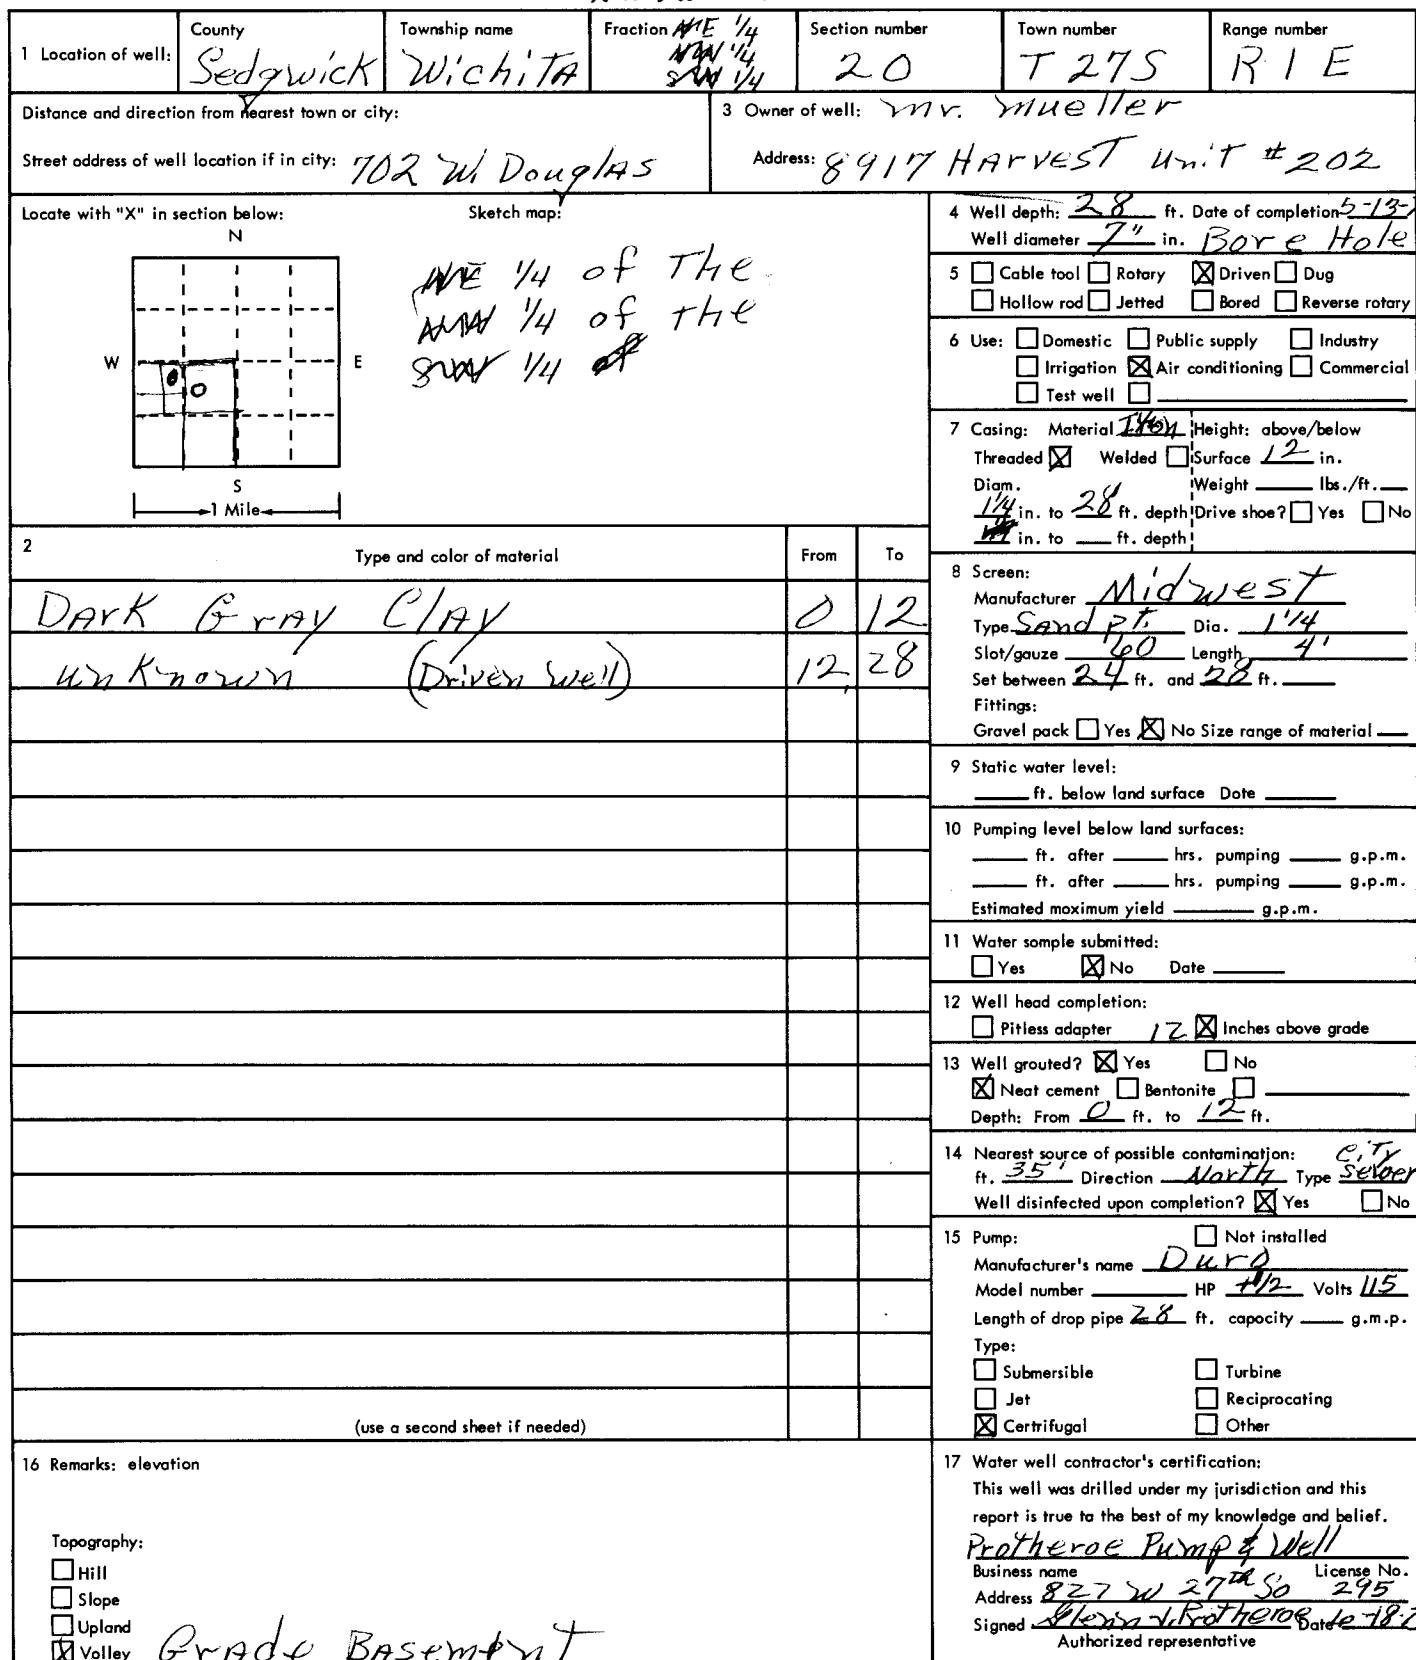 County Township name Fraction NE 1/4 Section number Town number Range number
1 Location of well: Sedgwick Wichita NW 1/4 20 T 27S R 1 E
SW 1/4
Distance and direction from nearest town or city:
3 Owner of well: Mr. Mueller
Street address of well location if in city: 702 W. Douglas
Address: 8917 Harvest Unit #202
Locate with "X" in section below: Sketch map:
N
W E
S
1 Mile
NE 1/4 of The
NW 1/4 of the
SW 1/4
4 Well depth: 28 ft. Date of completion 5-13-
Well diameter 7" in. Bore Hole
5 Cable tool Rotary Driven Dug
Hollow rod Jetted Bored Reverse rotary
6 Use: Domestic Public supply Industry
Irrigation Air conditioning Commercial
Test well
7 Casing: Material Iron Height: above/below
Threaded Welded Surface 12 in.
Diam. Weight lbs./ft.
1 1/4 in. to 28 ft. depth Drive shoe? Yes No
in. to ft. depth
2 Type and color of material From To
Dark Gray Clay 0 12
unknown (Driven Well) 12 28
(use a second sheet if needed)
8 Screen:
Manufacturer Midwest
Type Sand pt. Dia. 1 1/4
Slot/gauze 60 Length 4'
Set between 24 ft. and 28 ft.
Fittings:
Gravel pack Yes No Size range of material
9 Static water level:
ft. below land surface Date
10 Pumping level below land surfaces:
ft. after hrs. pumping g.p.m.
ft. after hrs. pumping g.p.m.
Estimated moximum yield g.p.m.
11 Water somple submitted:
Yes No Date
12 Well head completion:
Pitless adapter 12 Inches above grade
13 Well grouted? Yes No
Neat cement Bentonite
Depth: From 0 ft. to 12 ft.
14 Nearest source of possible contamination: City
ft. 35' Direction North Type Sewer
Well disinfected upon completion? Yes No
15 Pump: Not installed
Manufacturer's name Duro
Model number HP 1/2 Volts 115
Length of drop pipe 28 ft. capacity g.m.p.
Type:
Submersible Turbine
Jet Reciprocating
Certrifugal Other
16 Remarks: elevation
Topography:
Hill
Slope
Upland
Volley Grade Basement
17 Water well contractor's certification:
This well was drilled under my jurisdiction and this
report is true ta the best of my knowledge and belief.
Protheroe Pump & Well
Business name License No.
Address 827 W 27th So 295
Signed Glenn V. Protheroe Date -18-
Authorized representative